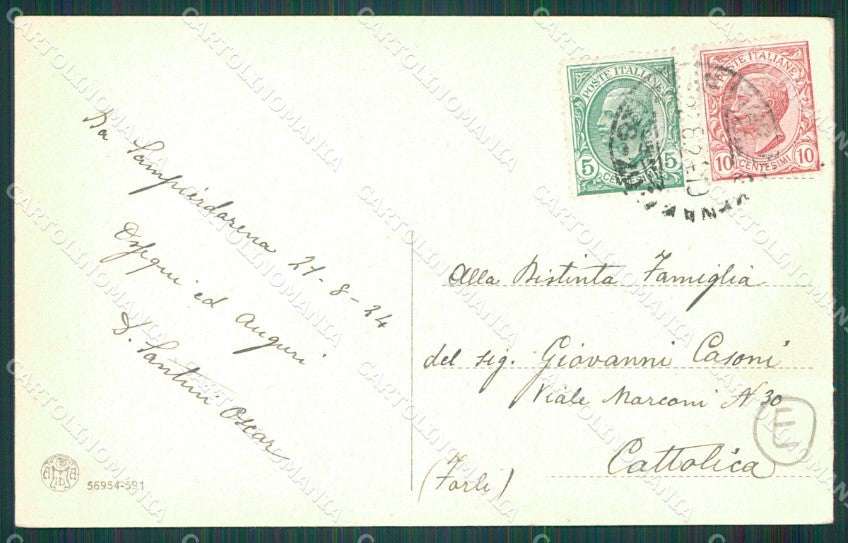 Da Sampierdarena 21-8-24
Ossequi ed auguri
D. Santini Oscar
56954-591
POSTE ITALIANE
5 CENT 5
POSTE ITALIANE
10 CENTESIMI 10
Alla Distinta Famiglia
del sig. Giovanni Casoni
Viale Marconi N 30
Cattolica
(Forlì)
E
CARTOLINOMANIA